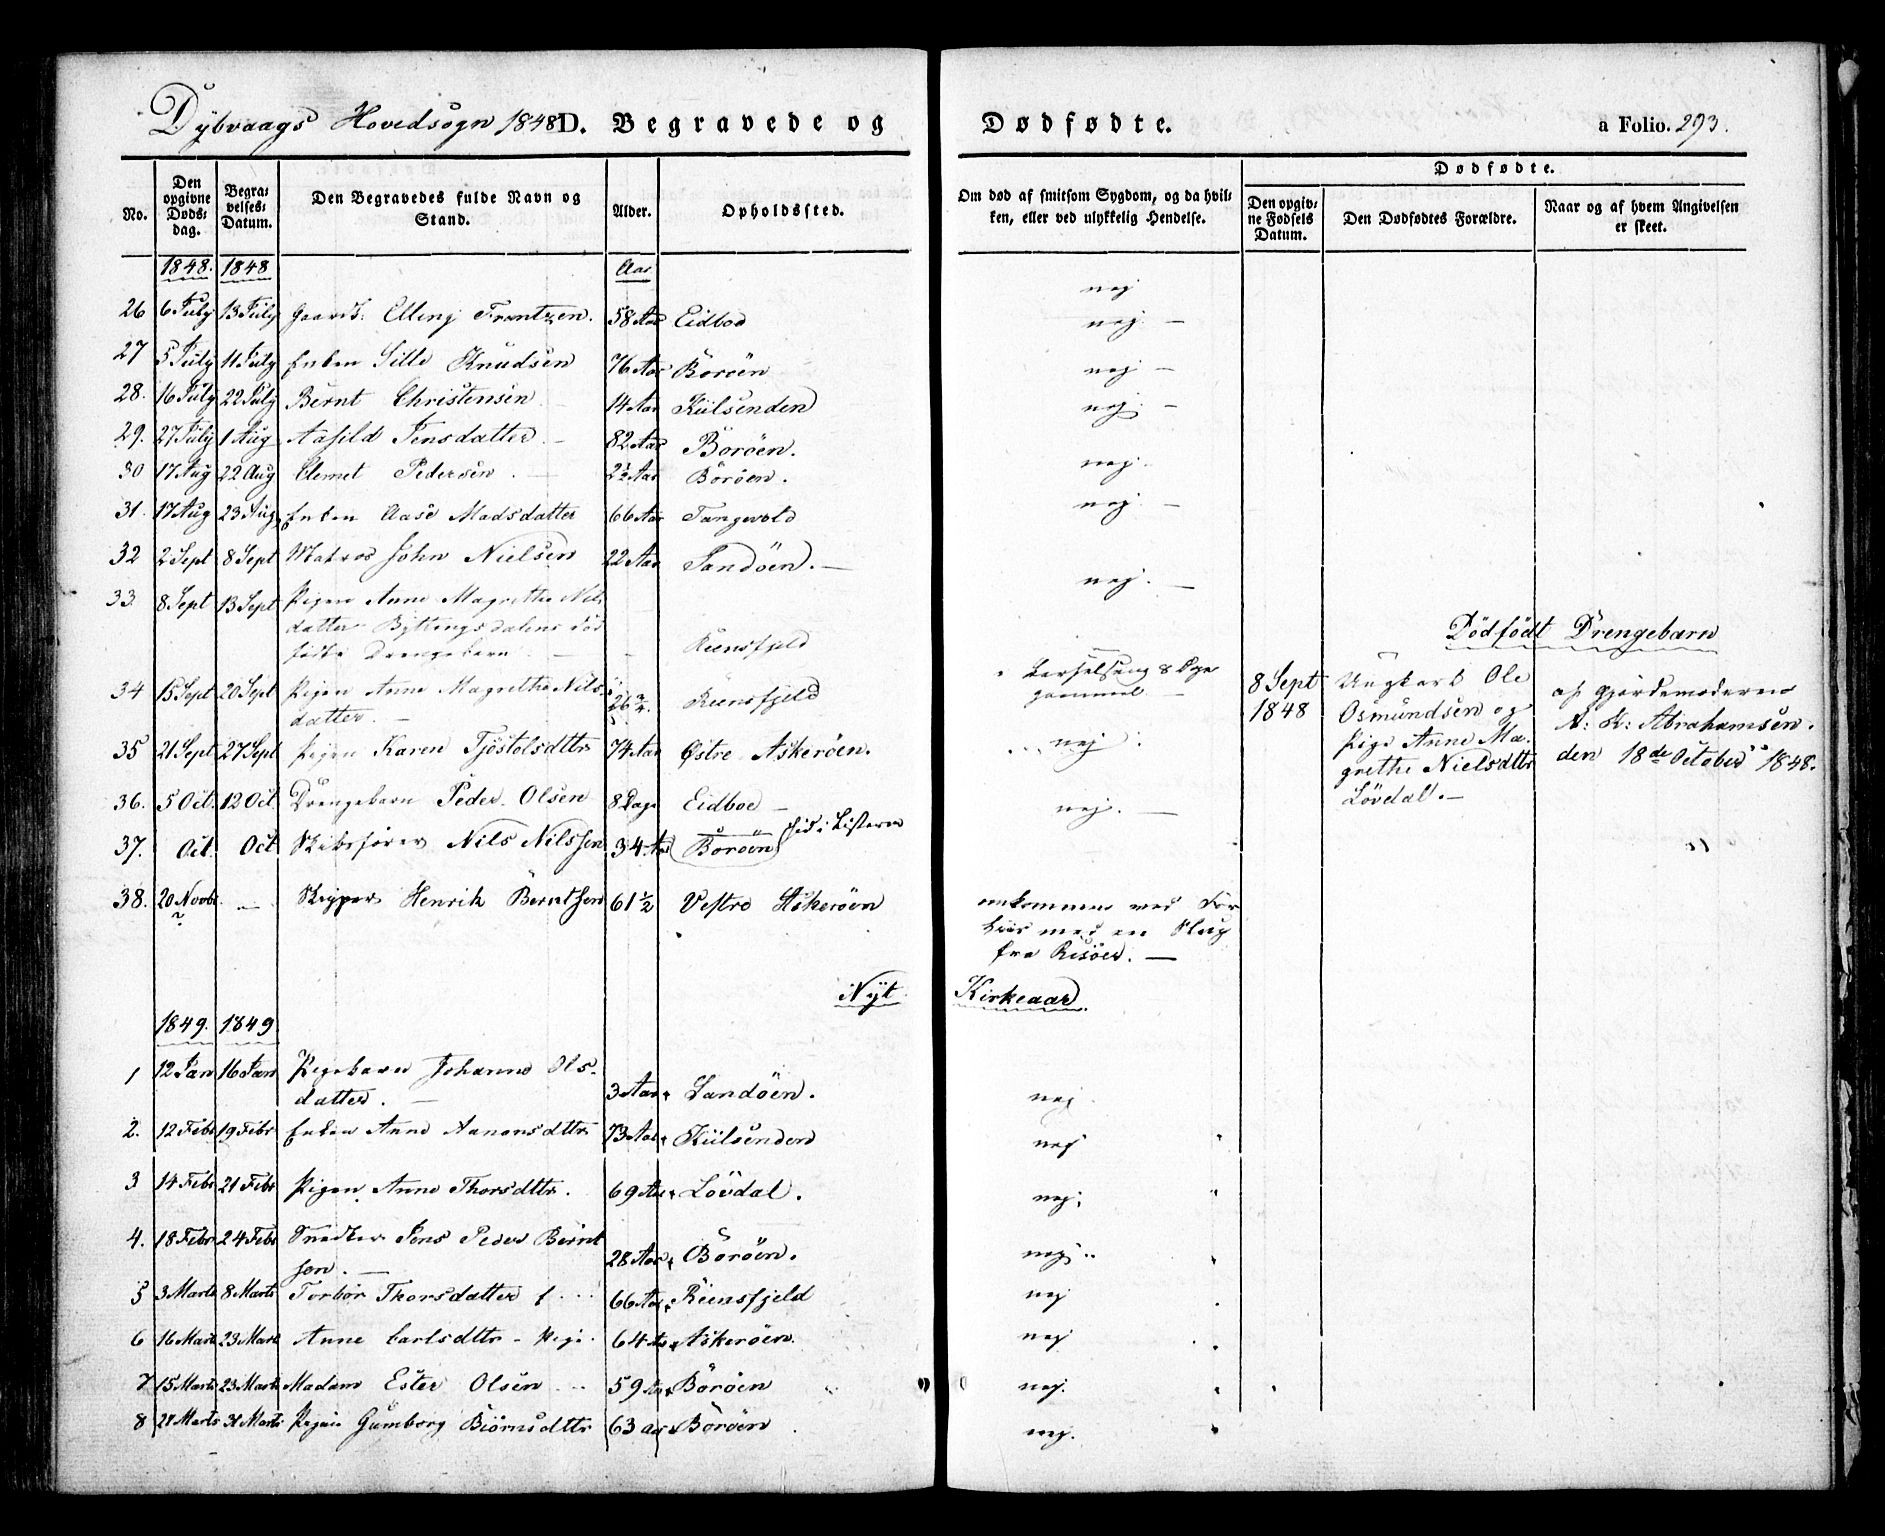 Dybvaags Hovedsogn 1848 D. Begravede og Dødfødte. a Folio. 293.
No. | Den opgivne Døds-dag. | Begra-velses-Datum. | Den Begravedes fulde Navn og Stand. | Alder. | Opholdssted. | Om død af smitsom Sygdom, og da hvil-ken, eller ved ulykkelig Hendelse. | Dødfødte. | Den opgiv-ne Fødsels Datum. | Den Dødfødtes Forældre. | Naar og af hvem Angivelsen er skeet.
1848. 1848 Aar
nej
26 6 July 13 July Gaardb. Elling Frantzen. 58 Aar Eidboe nej –
27 5 July 11 July Enken Sille Knudsen 76 Aar Boröen nej –
28. 16 July 22 July Bernt Christensen 14 Aar Kiilsenden nej –
29. 27 July 1 Aug Aasild Jensdatter – 82 Aar Boröen.
30 17 Aug 22 Aug Clemet Pedersen . – 2½ Aar Boröen. nej.
31. 17 Aug 23 Aug Enken Aase Madsdatter 66 Aar Tangvold nej. –
32 2 Sept 8 Sept Matros John Nielsen 22 Aar Sandöen. –
33 8 Sept 13 Sept Pigen Anne Magrethe Nils nej. –
datter Dalens död
födte Drengebarn – Reensfjeld
Dödfödt Drengebarn
34 15 Sept 20 Sept Pigen Anne Magrethe Nils- 26 Reensfjeld Barselseng 8 Dage
datter. – gammel –
8 Sept 1848
Ungkarl Ole
Osmundsen og
Pige Anne Ma-
grethe Nielsdttr
Lövdal. –
af Gjordemoderen
A: K: Abrahamsen.
den 18de October 1848.
35 21 Sept 27 Sept Pigen Karen Tjöstolsdttr 74 Aar Østre Askeröen. nej
36. 5 Oct. 12 Oct. Drengebarn Peder Olsen 8 Dage Eidboe – nej. –
37. Oct. Oct Skibsförer Nils Nilssen 34 Aar Boröen
38. 20 Novbr – Skipper Henrik Berntsen 61½ Vestre Askeröen omkommen ved For
liis med en Slup
fra Risöer. –
Nyt Kirkeaar
1849. 1849.
1 12 Jan 16 Jan Pigebarn Johanne Ols-
datter. – 3 Aar Sandöen. nej
2. 12 Febr 19 Febr Enken Anne Aanonsdttr 73 Aar Kiilsenden nej
3 14 Febr 21 Febr Pigen Anne Thorsdttr. 69 Aar Lövdal. nej
4. 18 Febr 24 Febr Snedker Jens Peder Bernt
sen. – 28 Aar Boröen. nej
5 3 Marts 8 Marts Torbor Thorsdatter f 66 Aar Reensfjeld nej
6 16 Marts 23 Marts Anne Carlsdttr – Pige. 64 Aar Askeröen. nej
7 15 Marts 23 Marts Madam Ester Olsen 59 Aar Boröen nej.
8 27 Marts 31 Marts Pigen Gumborg Biörnsdttr 63 aar Boröen nej.